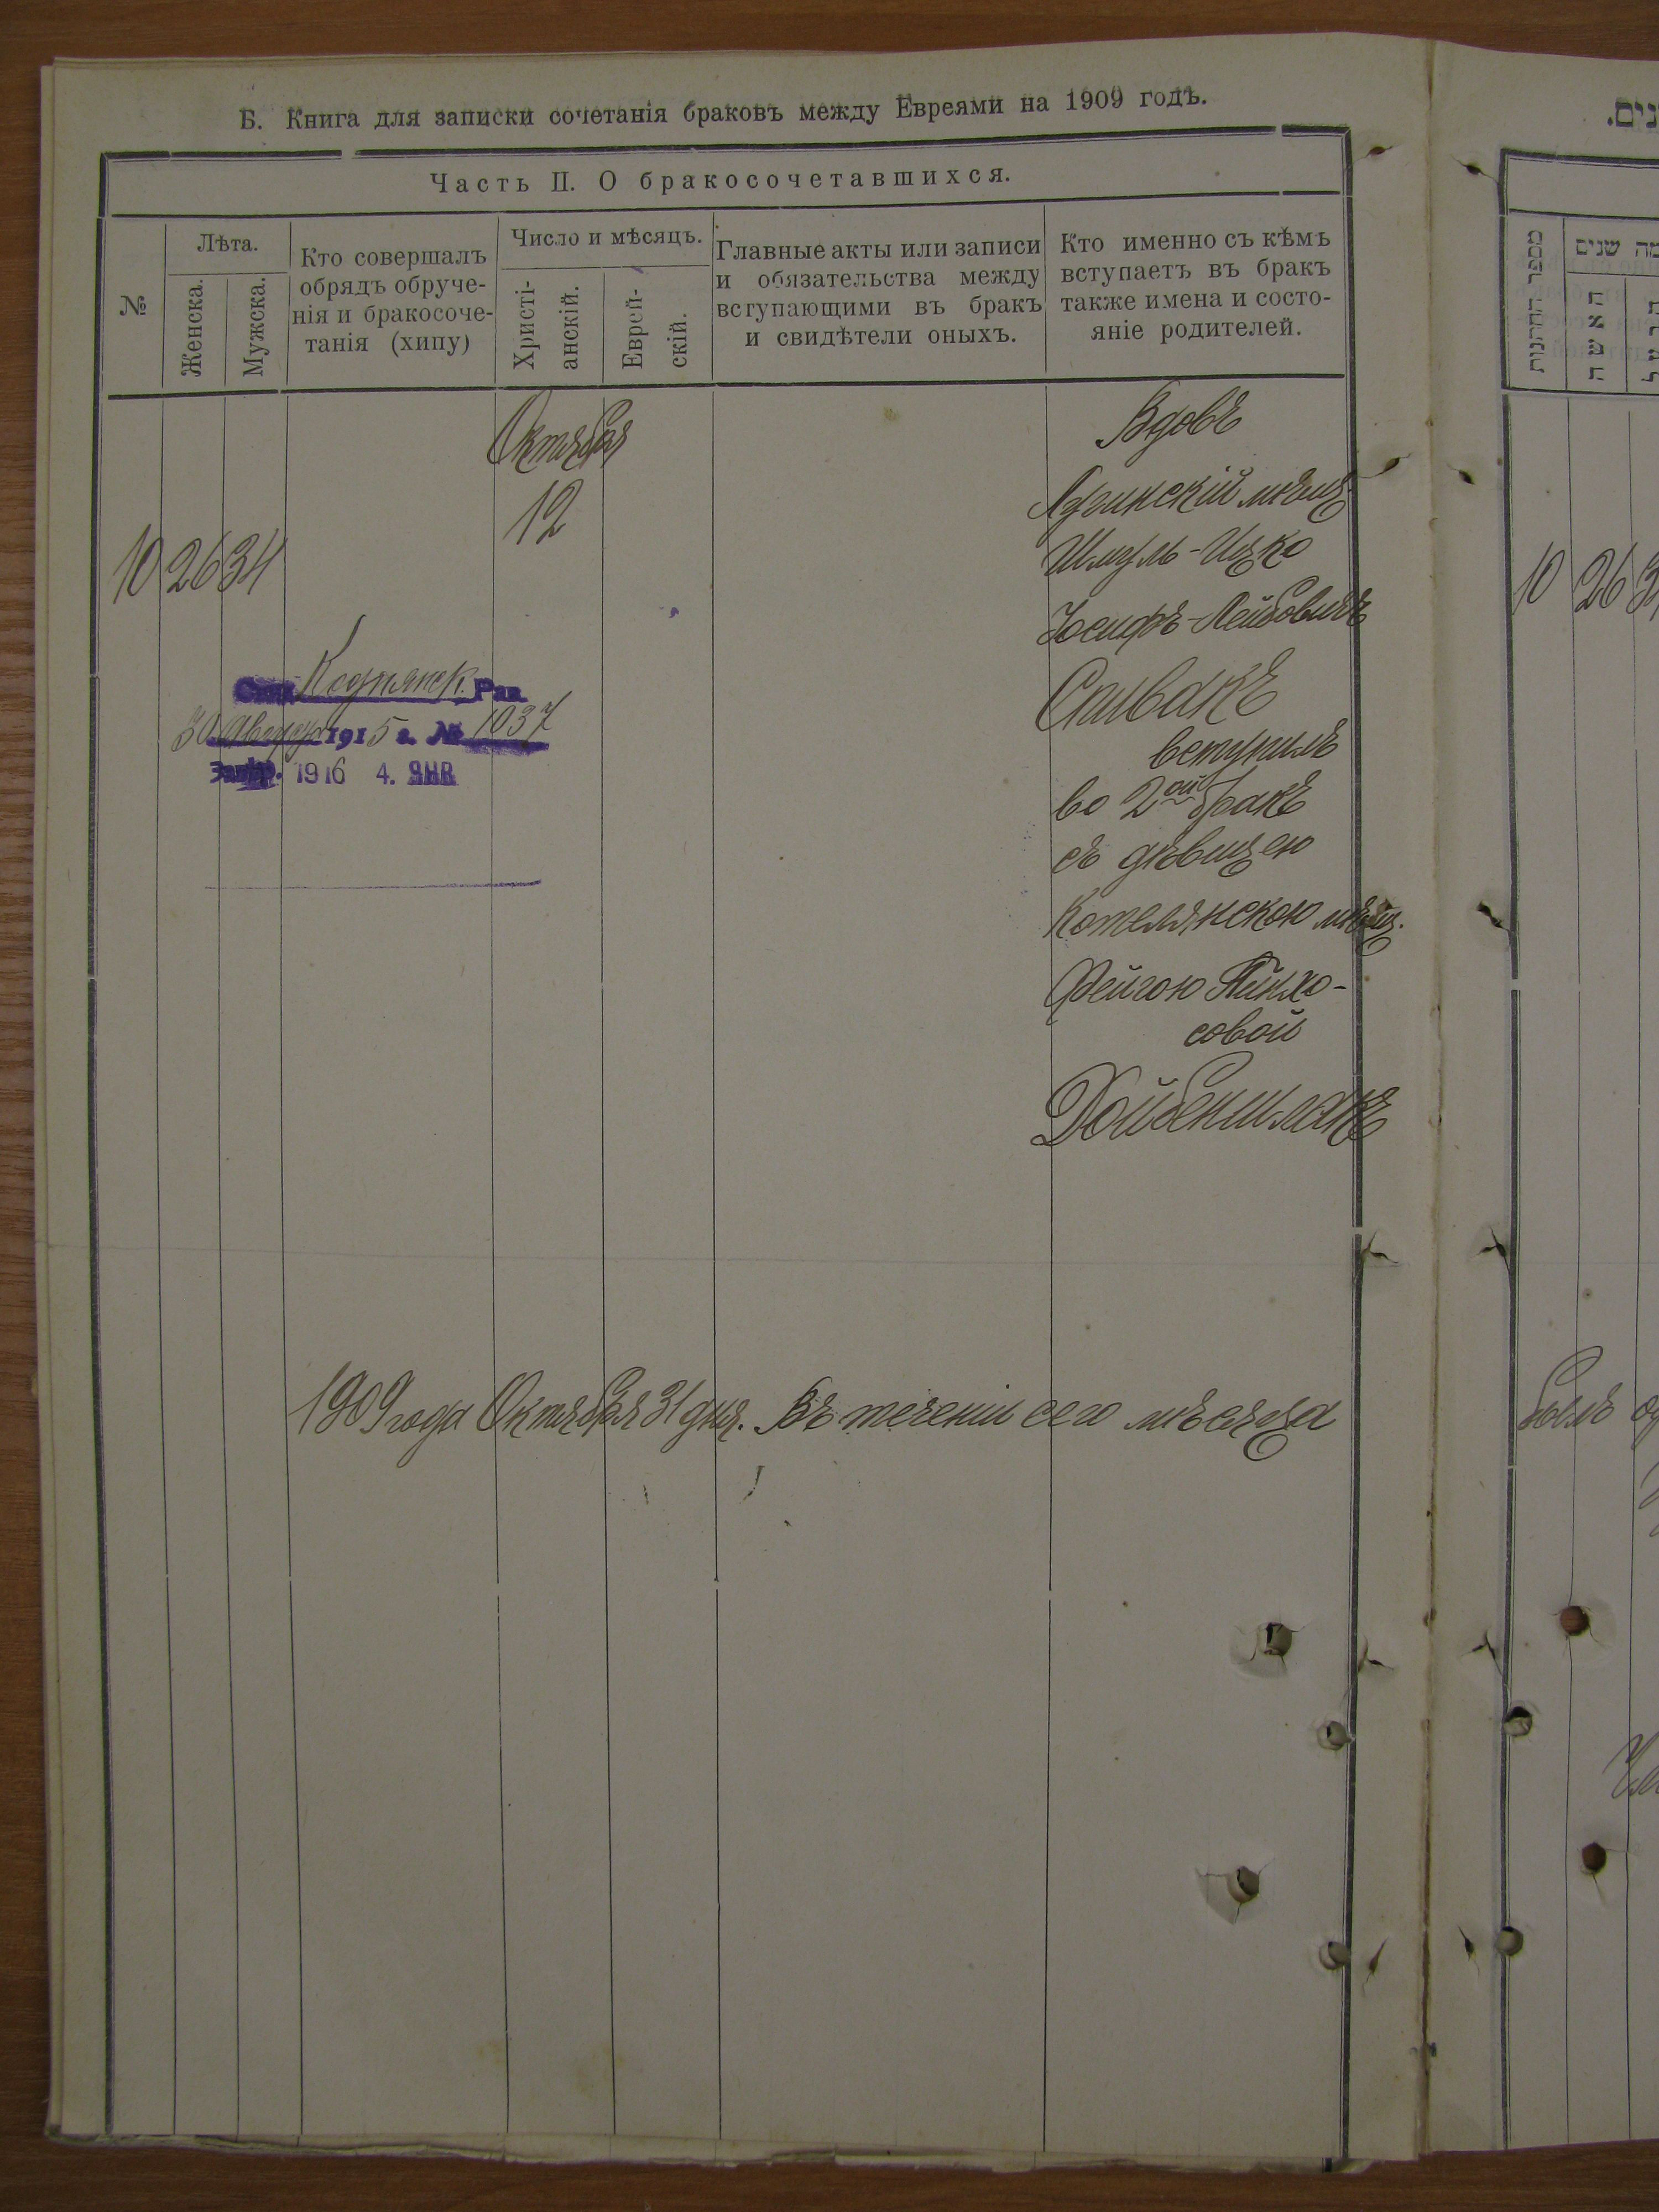 Б. Книга для записки сочетанія браковъ между Евреями на 1909 годъ.
Часть II. О бракосочетавшихся.
№
Лѣта.
Женска.
Мужска.
Кто совершалъ
обрядъ обруче-
нія и бракосоче-
танія (хипу)
Число и мѣсяцъ.
Христі-
анскій.
Еврей-
скій.
Главные акты или записи
и обязательства между
вступающими въ бракъ
и свидѣтели оныхъ.
Кто именно съ кѣмъ
вступаетъ въ бракъ
также имена и состо-
яніе родителей.
10 26 34
Октября
12
Вдовъ
мѣщ.
Шмуль-Ицко
Іосифъ-Лейбовичъ
Спивакъ
вступилъ
во 2ой бракъ
съ дѣвицею
Котелянскою мѣщ.
Фейгою Пинхо-
совой
Ройбенштокъ
Рав
30 Августа 1915 г. № 1037
1916 4. ЯНВ
1909 года Октября 31 дня. Въ теченіи сего мѣсяца
נים.
מספר החתונות
מה שנים
האשה
10 26
былъ